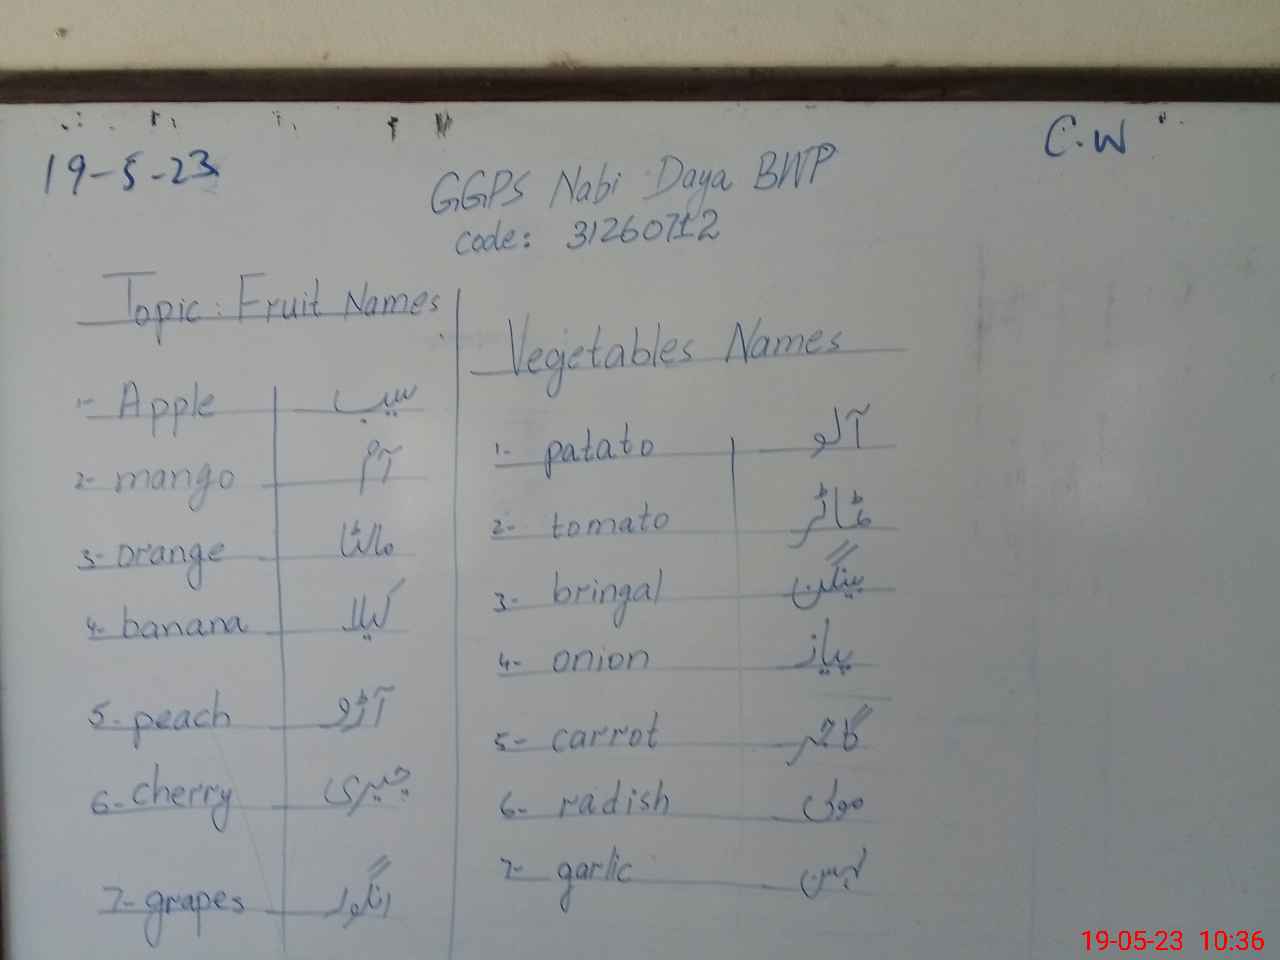 19-5-23
C.W
GGPS Nabi Daya BWP
code: 31260712
Topic: Fruit Names
1- Apple سیب
2- mango آم
3- orange مالٹا
4- banana کیلا
5- peach آڑو
6- cherry چیری
7- grapes انگور
Vegetables Names
1- patato آلو
2- tomato ٹماٹر
3- bringal بینگن
4- onion پیاز
5- carrot گاجر
6- radish مولی
7- garlic لہسن
19-05-23 10:36